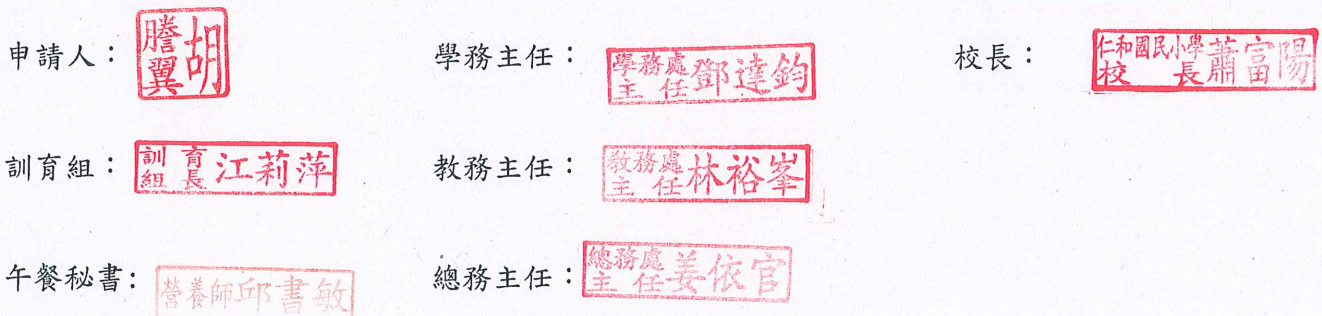 申請人： 胡騰翼 學務主任： 學務處主任鄧達鈞 校長： 仁和國民小學校長蕭富陽
訓育組： 訓育組長江莉萍 教務主任： 教務處主任林裕峯
午餐秘書: 營養師邱書敏 總務主任： 總務處主任姜依官